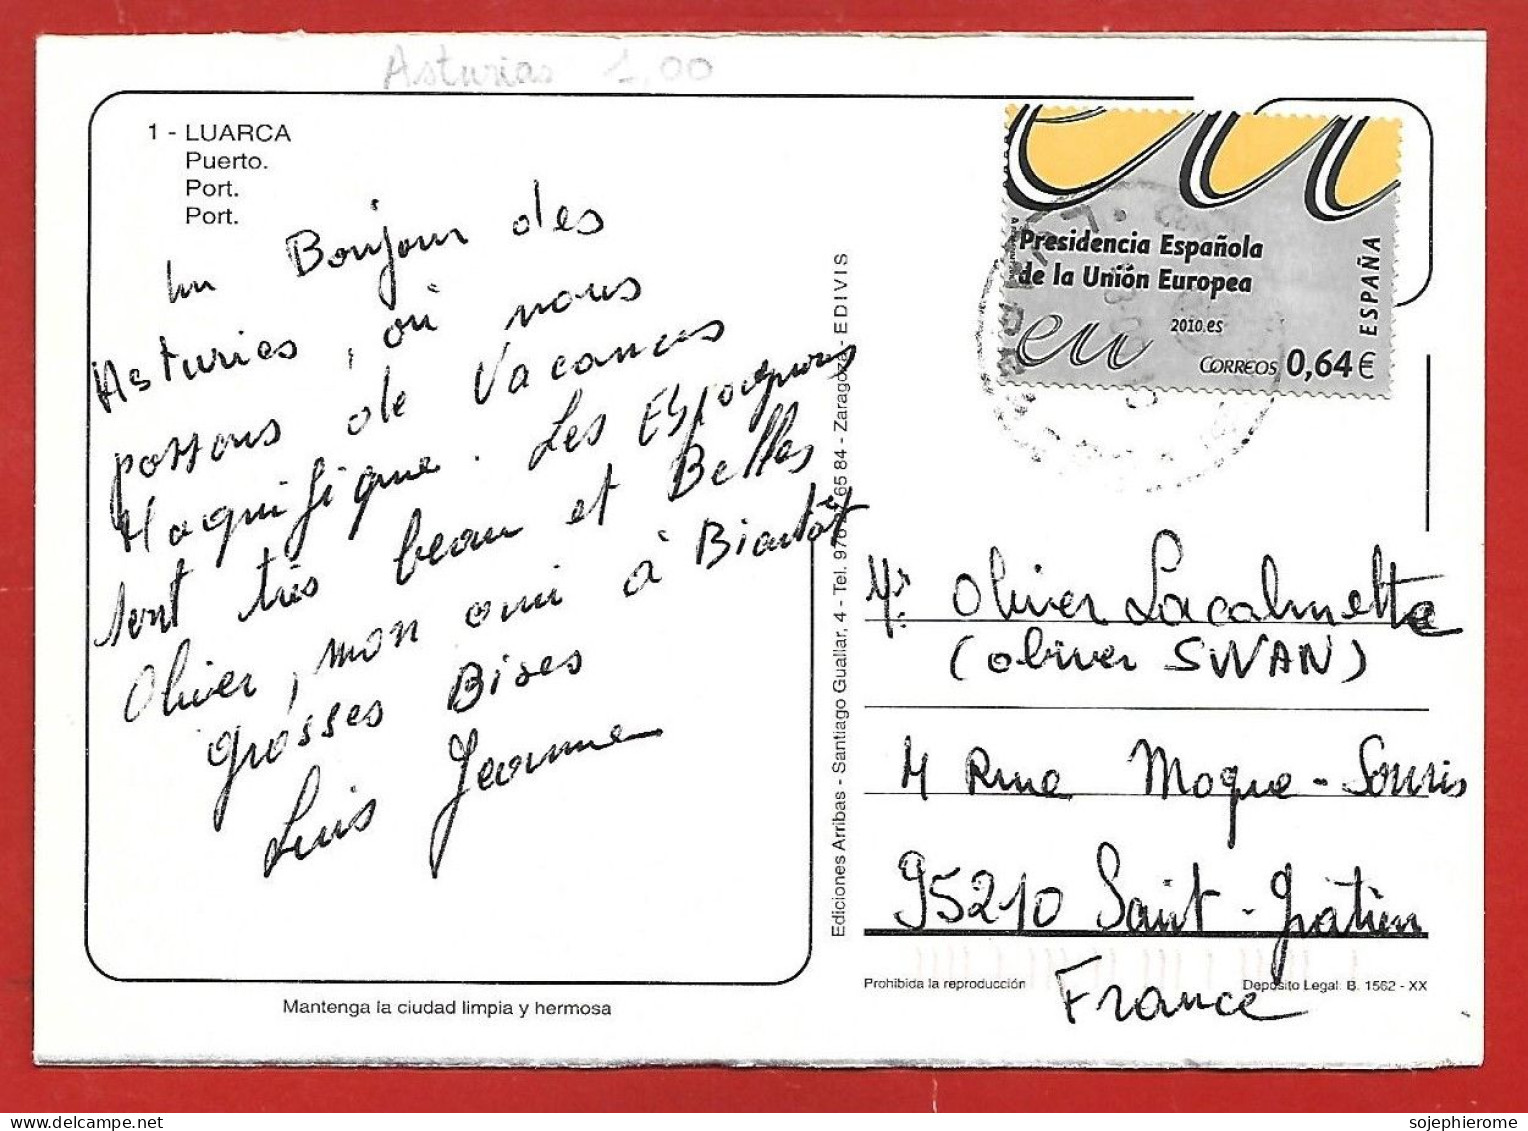 Asturias 1,00
1 - LUARCA
Puerto.
Port.
Port.
un Bonjour des
Asturies, où nous
passons de Vacances
Magnifique. Les Espagnoles
sont très beau et Belles
Olivier, mon ami à Bientôt
grosses Bises
Luis Jeanne
Mantenga la ciudad limpia y hermosa
Ediciones Arribas - Santiago Guallar, 4 - Tel. 976 65 84 - Zaragoza - EDIVIS
Presidencia Española
de la Unión Europea
2010.es
eu
CORREOS 0,64€
ESPAÑA
Mr: Olivier Lacalmette
(Olivier SWAN)
4 Rue Moque-Souris
95210 Saint-Gratien
France
Prohibida la reproducción
Depósito Legal: B. 1562 - XX
sojephierome